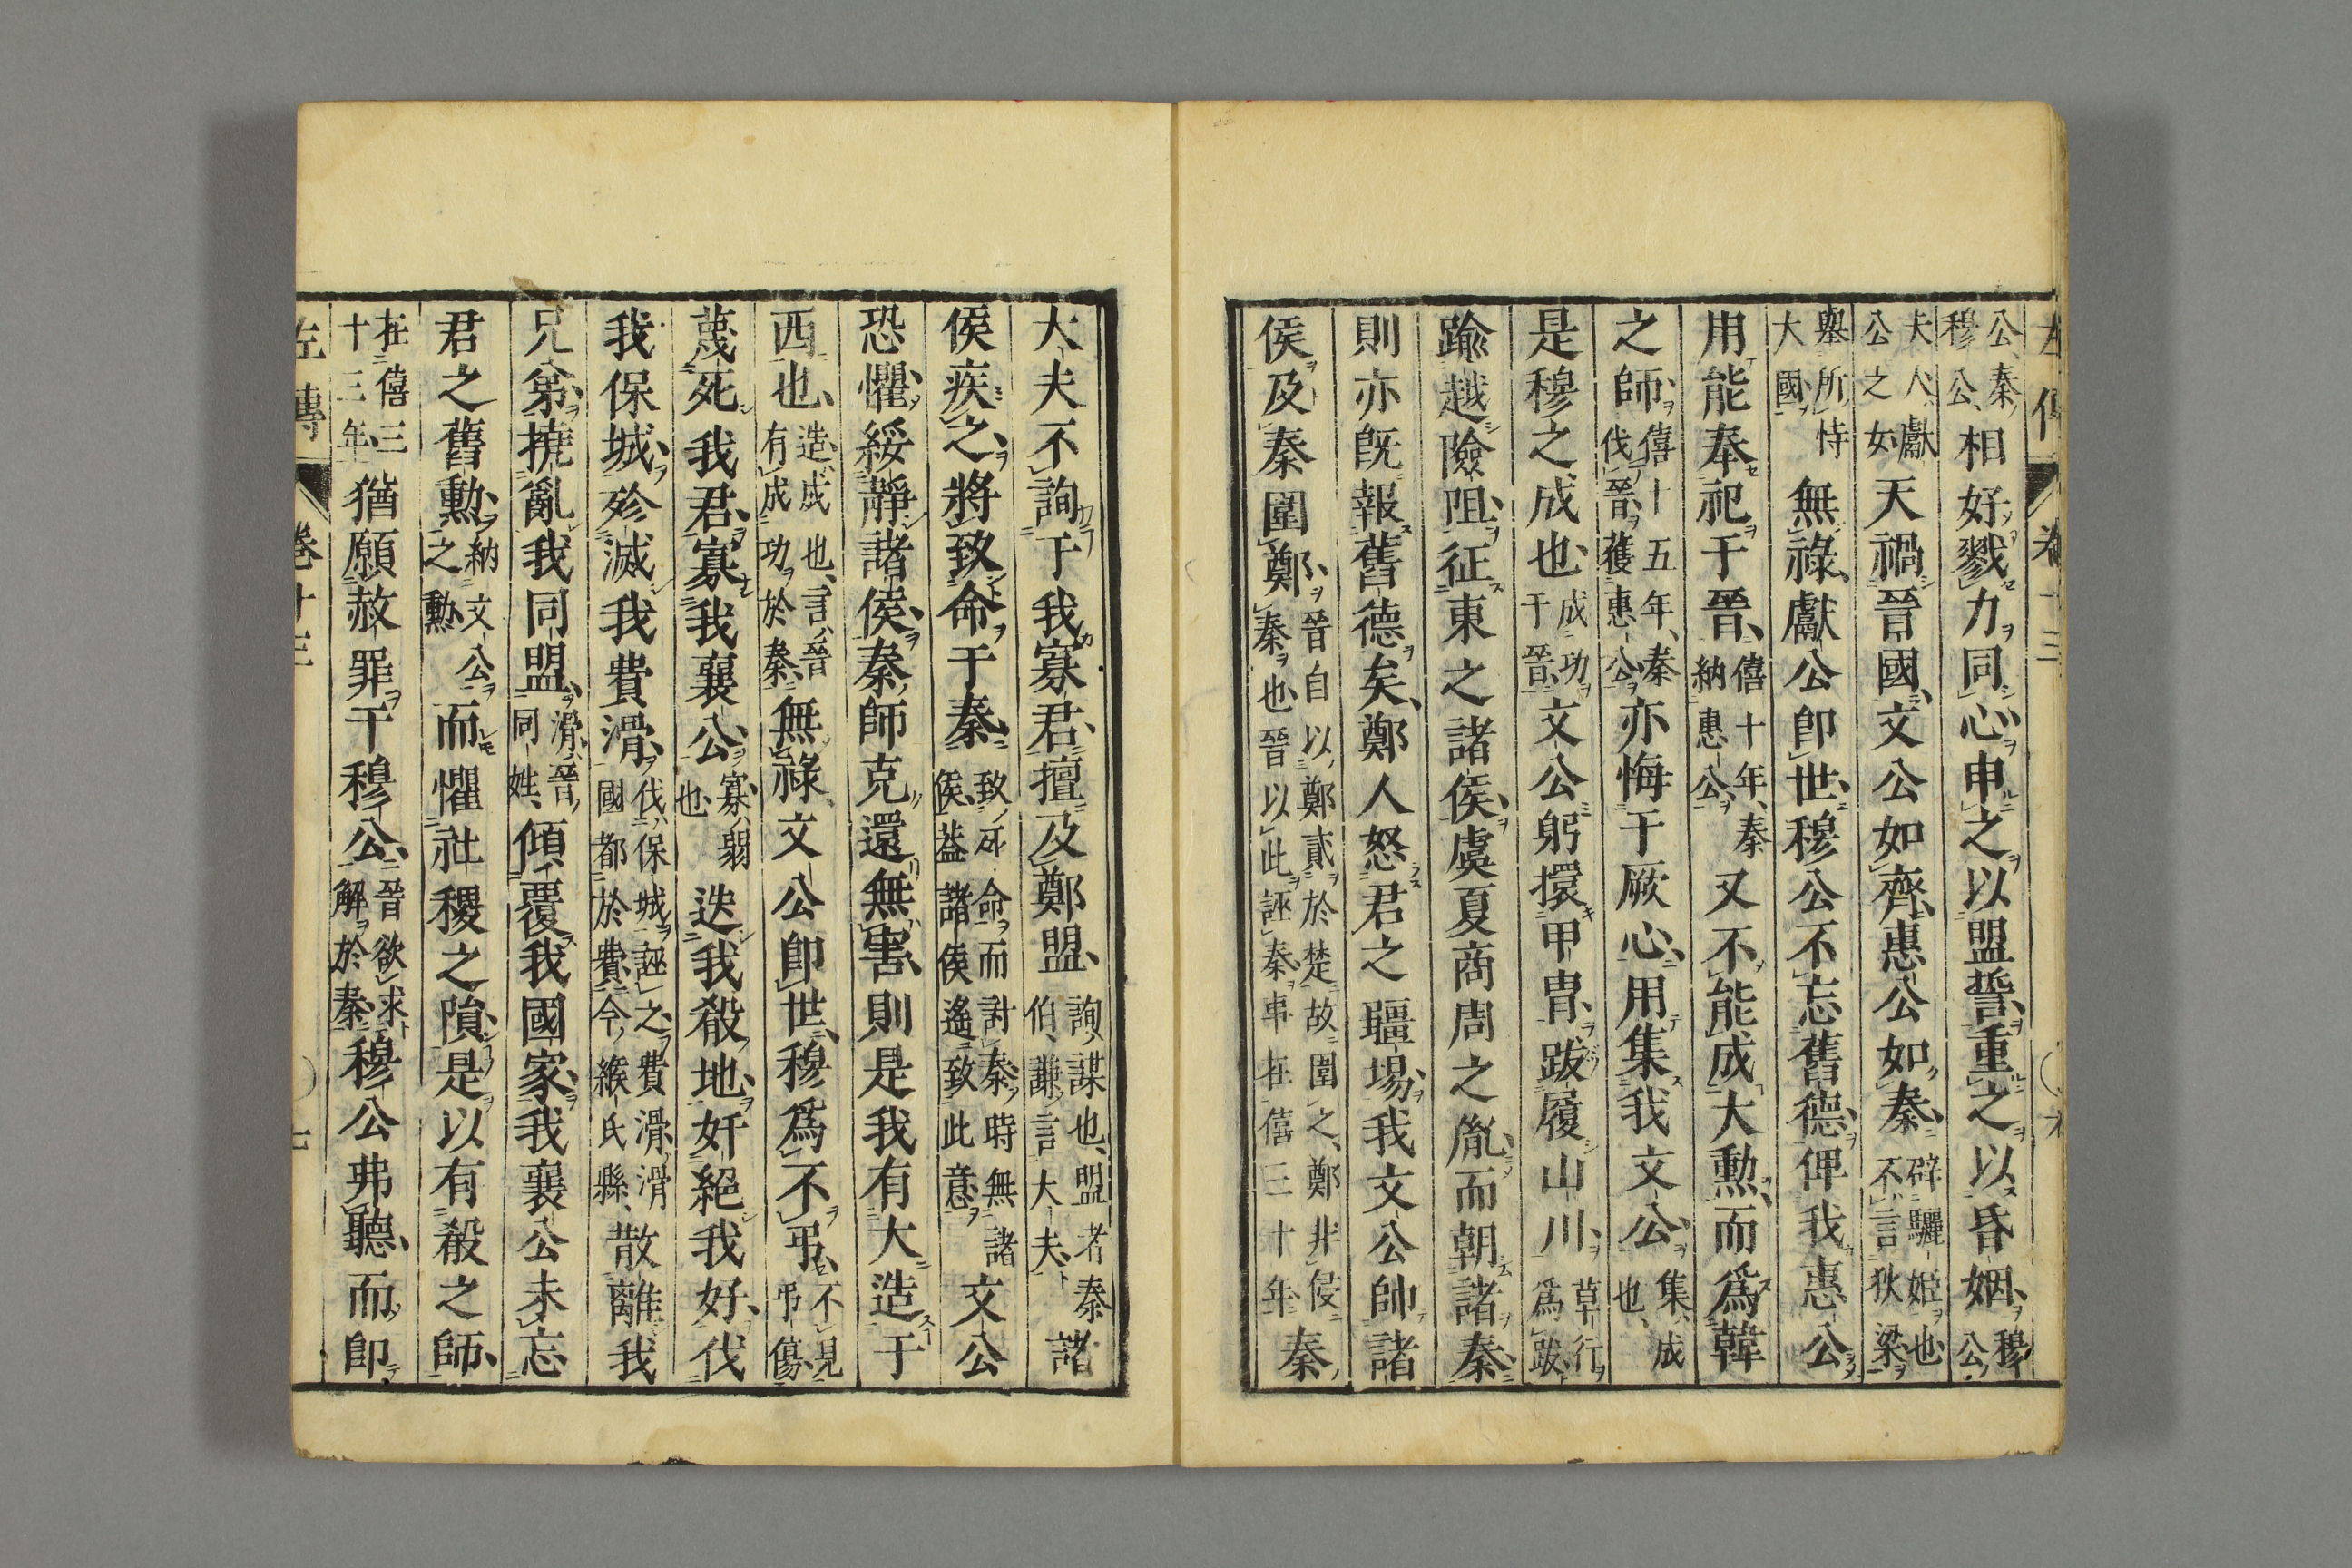 公秦穆公相好戮力同心申之以盟誓重之以昏姻穆公
夫人獻公之女天禍晉國文公如齊惠公如秦辟驪姬也不言狄梁
舉所恃大國無祿獻公卽世穆公不忘舊德俾我惠公
用能奉祀于晉僖十年秦納惠公又不能成大勲而爲韓
之師僖十五年秦伐晉獲惠公亦悔于厥心用集我文公集成也
是穆之成也成功于晉文公躬擐甲冑跋履山川草行爲跋
踰越險阻征東之諸侯虞夏商周之胤而朝諸秦
則亦旣報舊德矣鄭人怒君之疆埸我文公帥諸
侯及秦圍鄭晉自以鄭貳於楚故圍之鄭非侵秦也晉以此誣秦事在僖三十年秦
大夫不詢于我寡君擅及鄭盟詢謀也盟者秦伯謙言大夫諸
侯疾之將致命于秦致死命而討秦時無諸侯蓋諸侯遙致此意文公
恐懼綏靜諸侯秦師克還無害則是我有大造于
西也造成也言晉有成功於秦無祿文公卽世穆爲不弔不見弔傷
蔑死我君寡我襄公寡弱也迭我殽地奸絕我好伐
我保城殄滅我費滑伐保城誣之費滑滑國都於費今緱氏縣散離我
兄弟撓亂我同盟滑晉同姓傾覆我國家我襄公未忘
君之舊勲納文公之勲而懼社稷之隕是以有殽之師
在僖三十三年猶願赦罪于穆公晉欲求解於秦穆公弗聽而卽
左傳 卷十三 七